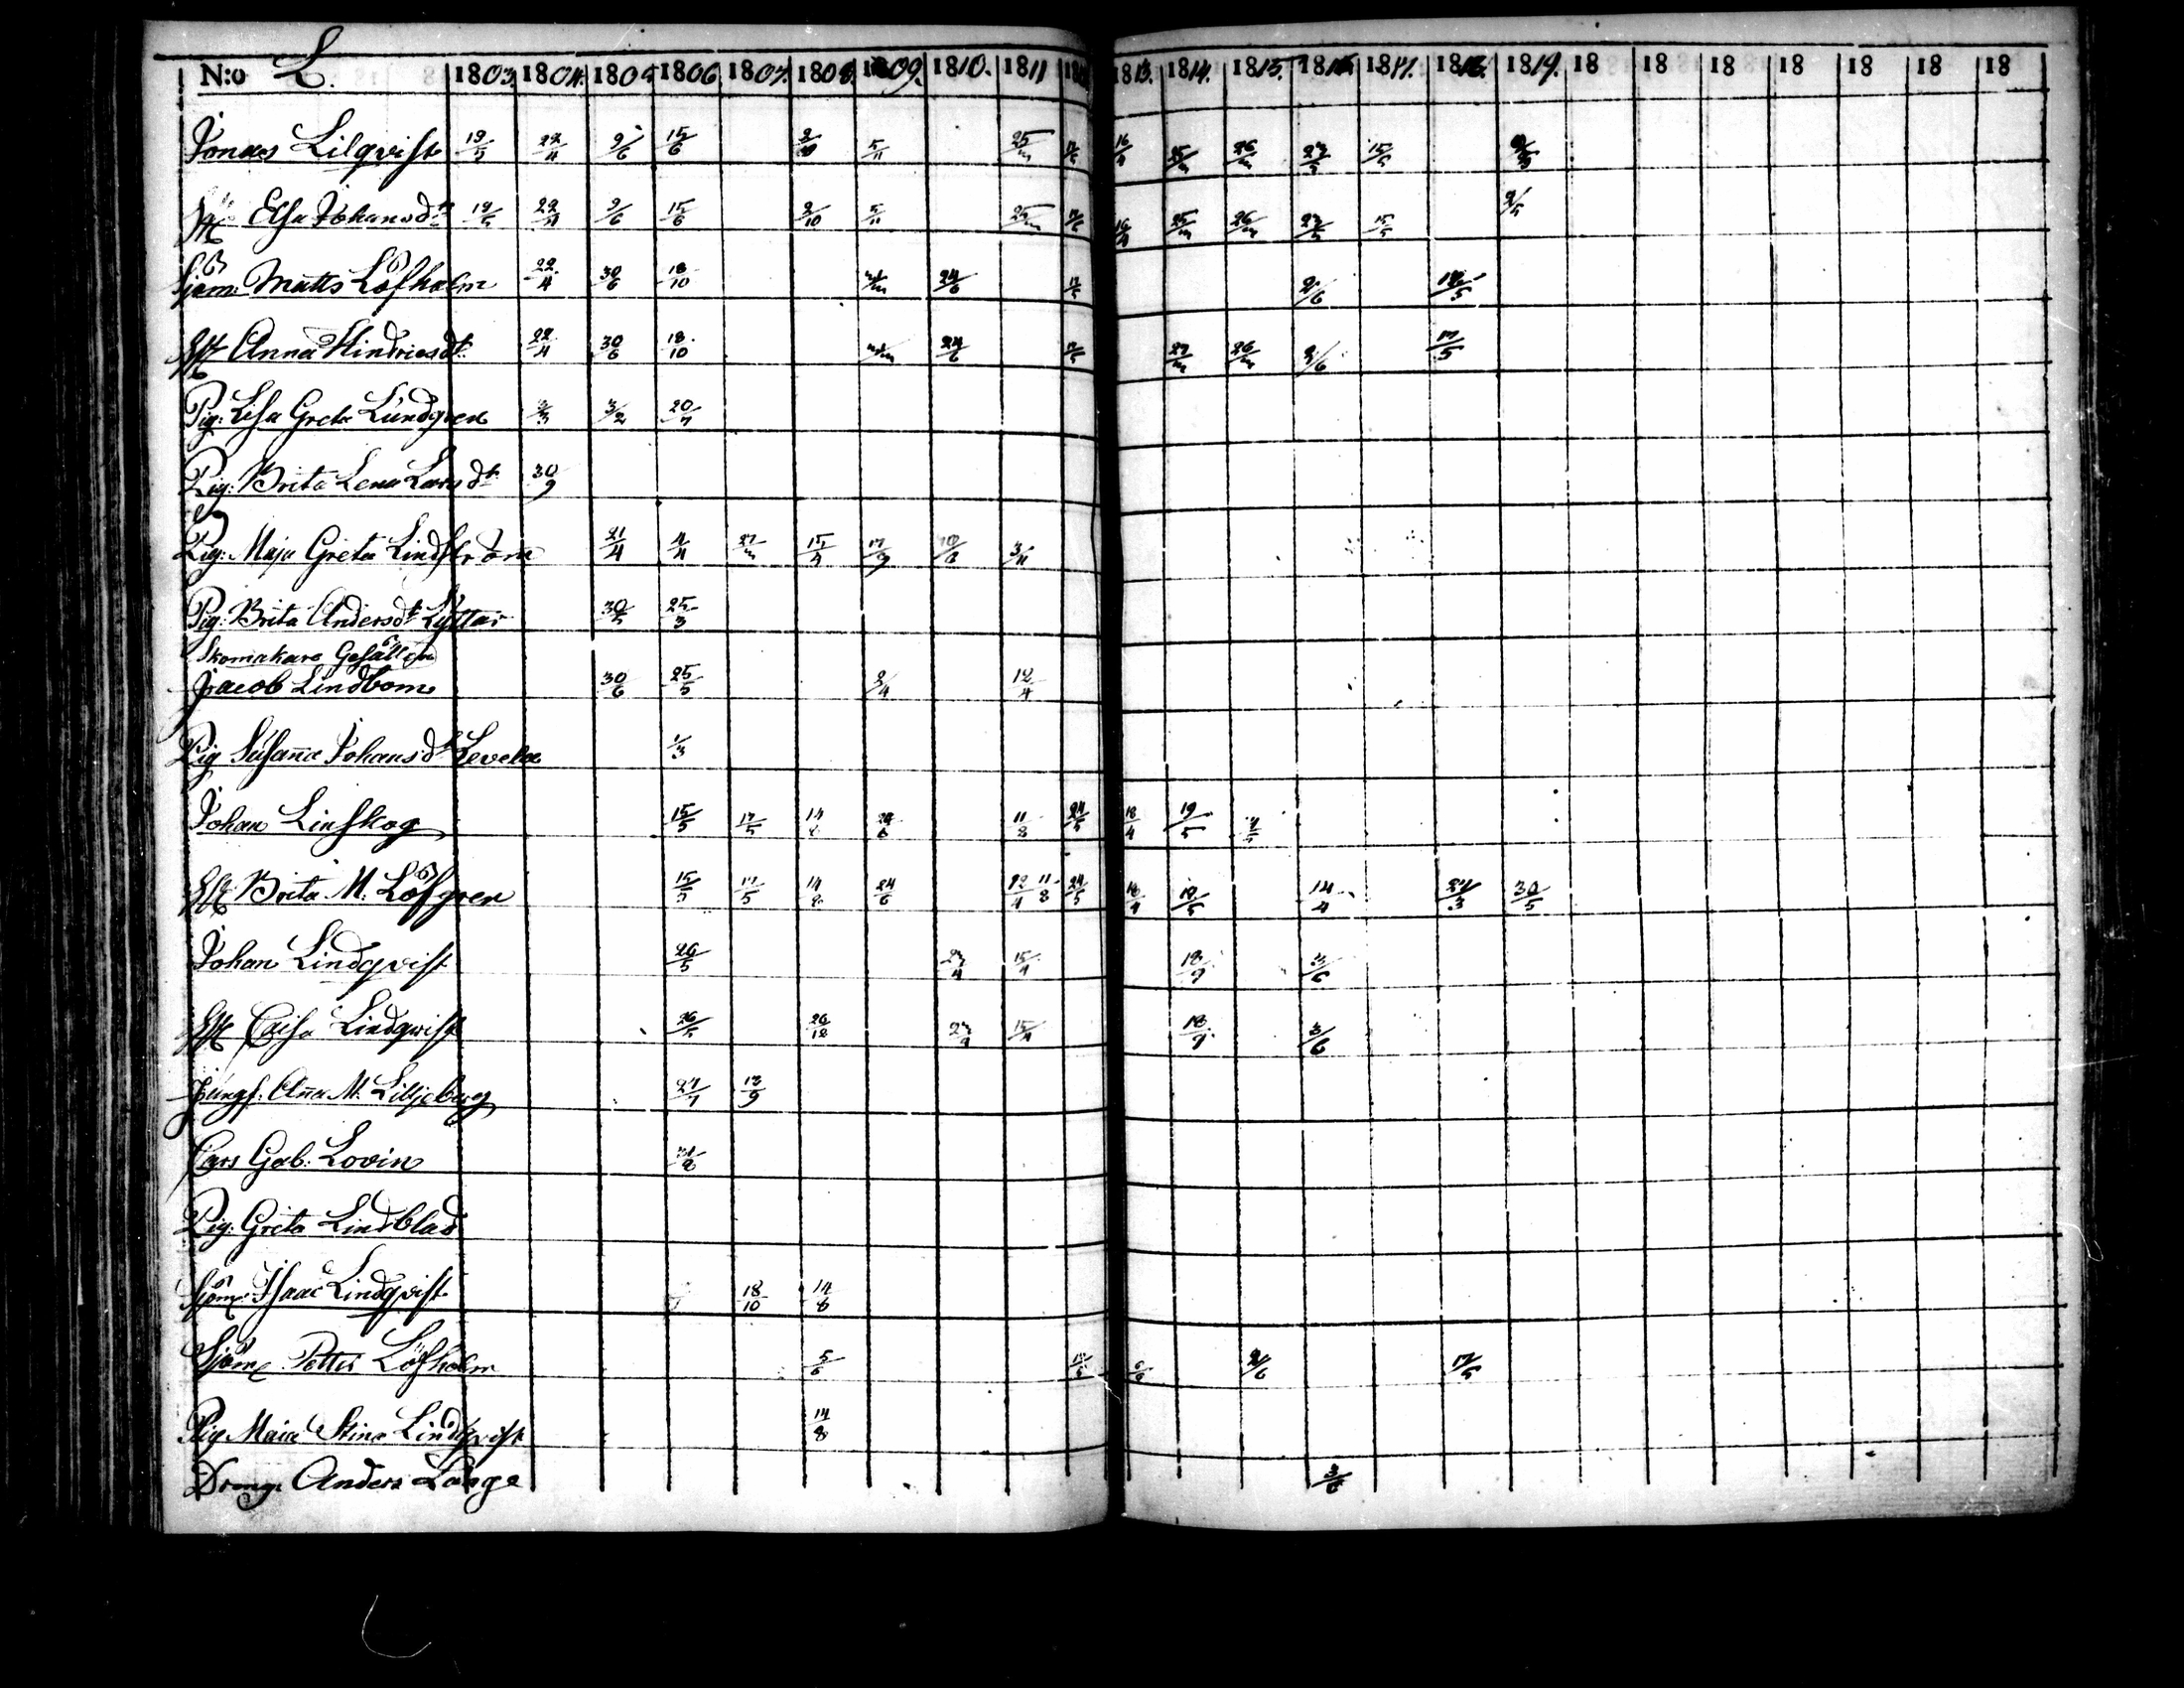 N:o L. 1803. 1804. 1805. 1806. 1807. 1808. 1809. 1810. 1811 18 1813. 1814. 1815. 1816. 1817. 1818. 1819. 18 18 18 18 18 18 18
Jonas Lilqvist 19/5 22/4 9/6 15/6 9/10 5/11 25/m 16/4 25/m 26/m 15/5
H. Elsa Johansdr 19/5 22/4 9/6 15/6 9/10 5/11 25/m 16/4 25/m 26/m 15/5 2/5
Sjöm: Matts Löfholm 22/4 30/6 18/10 24/6 2/6
H Anna Hindricsdr 22/4 30/6 18/10 24/6 27/m 26/m 2/6 17/5
Pig: Lisa Greta Lundgren 3/3 3/2 20/7
Pig: Brita Lena Larsdr 30/9
Pig: Maja Greta Lindström 21/4 4/4 27/m 15/4 17/9 10/6 3/11
Pig: Brita Andersdr Lyttar 30/5 25/3
Skomakare Gesällen
Jacob Lindbom 30/6 25/5 2/4 12/4
Pig Susaña Johansdr Levela 1/3
Johan Linskog 15/5 17/5 14/8 24/6 11/8 24/5 18/4 19/5
H Brita M. Löfgren 15/5 17/5 14/8 24/6 12/4 11/8 24/5 18/4 19/5 14/4 24/3 30/5
Johan Lindqvist 26/5 27/4 15/4 18/9 3/6
H Caisa Lindqvist 26/5 26/12 27/4 15/4 18/9 3/6
Jungf. Aña M. Liljeberg 27/7 17/9
Cars Gab: Lovin
Pig: Greta Lindblad
Sjöm: Isaac Lindqvist 18/10 14/8
Sjöm: Petter Löfholm 5/6 2/6 17/5
Pig Maia Stina Lindqvist 14/8
Dreng: Anders Långe 3/6